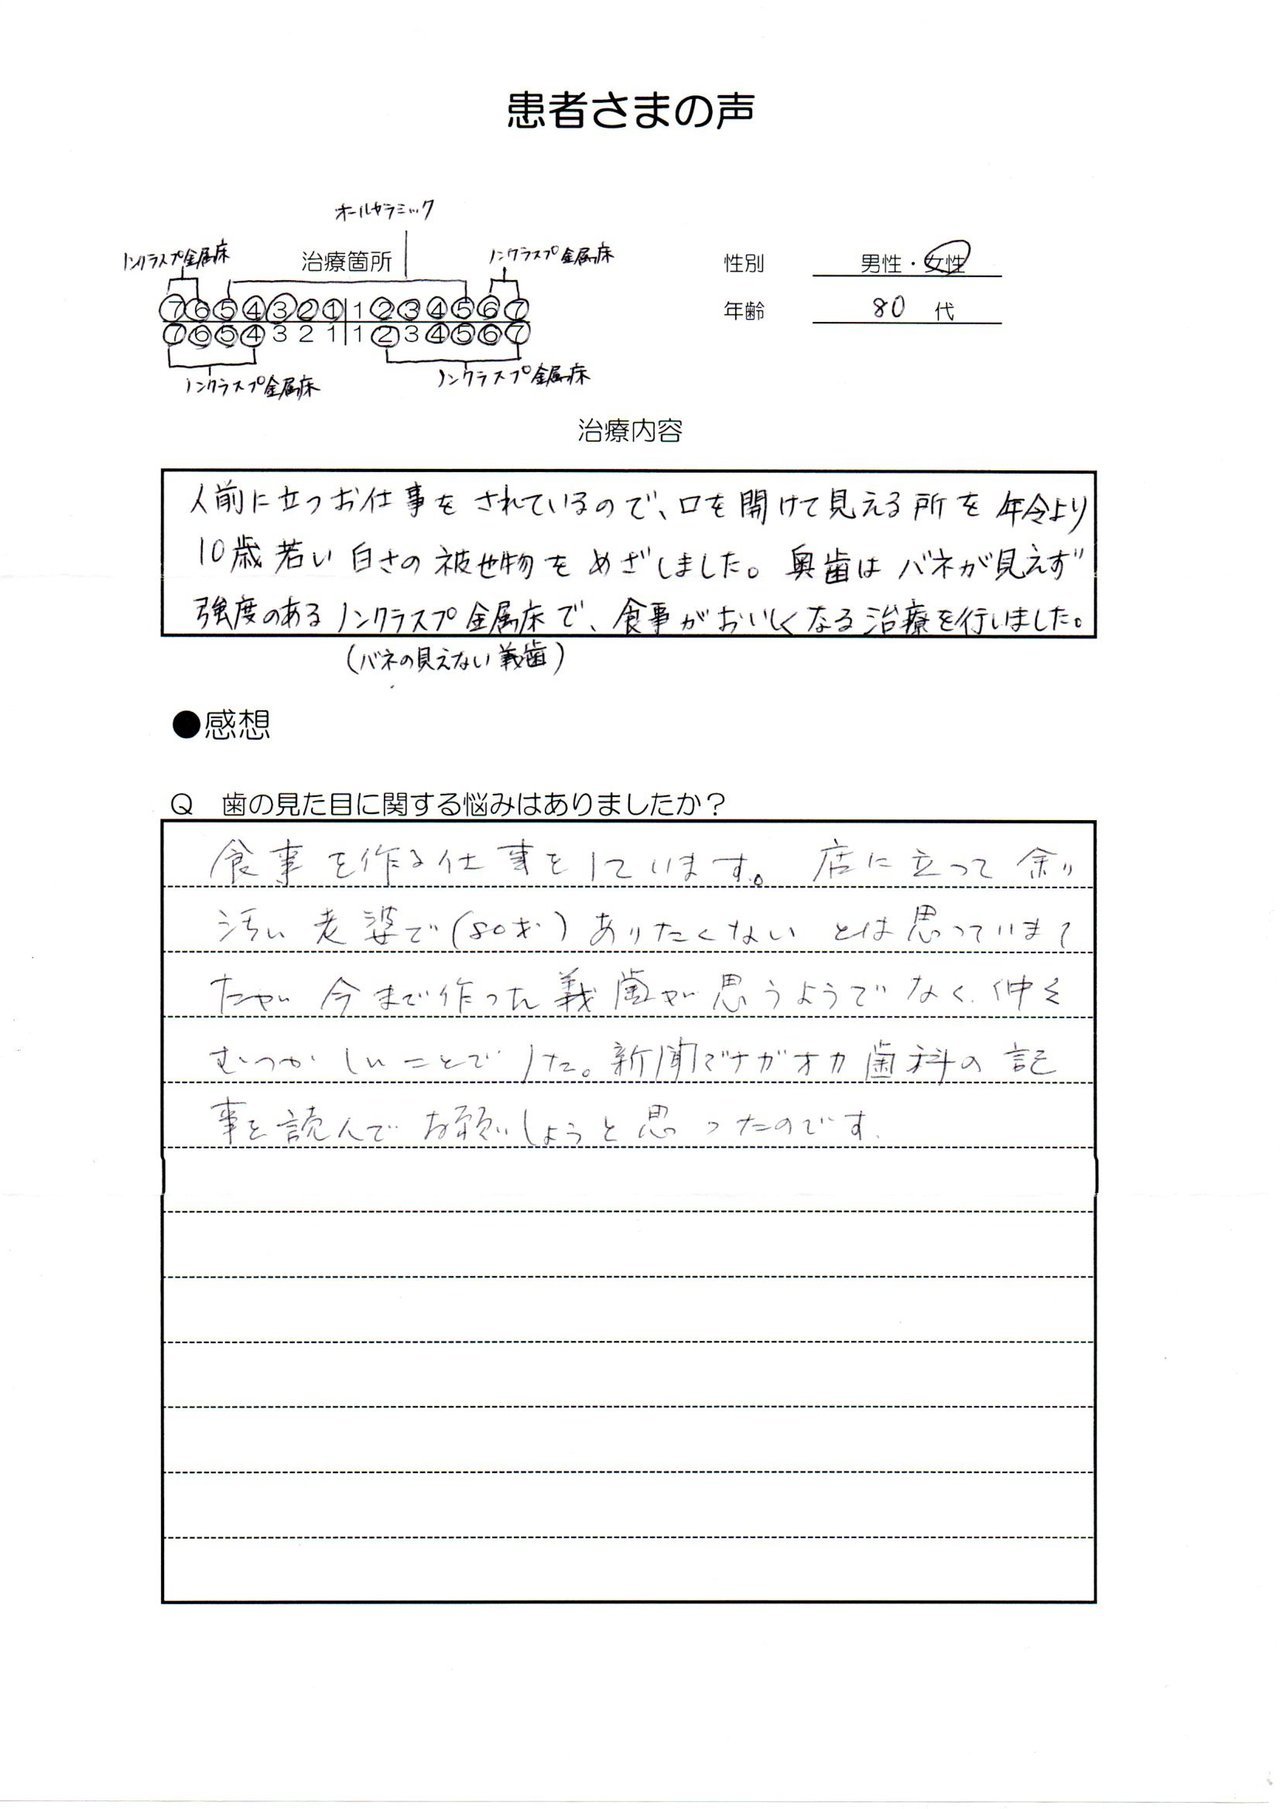 患者さまの声
オールセラミック
ノンクラスプ金属床
治療箇所
ノンクラスプ金属床
性別 男性・女性
⑦⑥⑤④③②①|1②③④⑤⑥⑦
年齢 80 代
⑦⑥⑤④321|1②3④⑤⑥⑦
ノンクラスプ金属床
ノンクラスプ金属床
治療内容
人前に立つお仕事をされているので、口を開けて見える所を年令より
10歳若い白さの被せ物をめざしました。奥歯はバネが見えず
強度のあるノンクラスプ金属床で、食事がおいしくなる治療を行いました。
(バネの見えない義歯)
●感想
Q 歯の見た目に関する悩みはありましたか？
食事を作る仕事をしています。店に立って余り
汚い老婆で(80才)ありたくないとは思っていまし
たが今まで作った義歯が思うようでなく、仲々
むつかしいことでした。新聞でナガオカ歯科の記
事を読んでお願いしようと思ったのです.